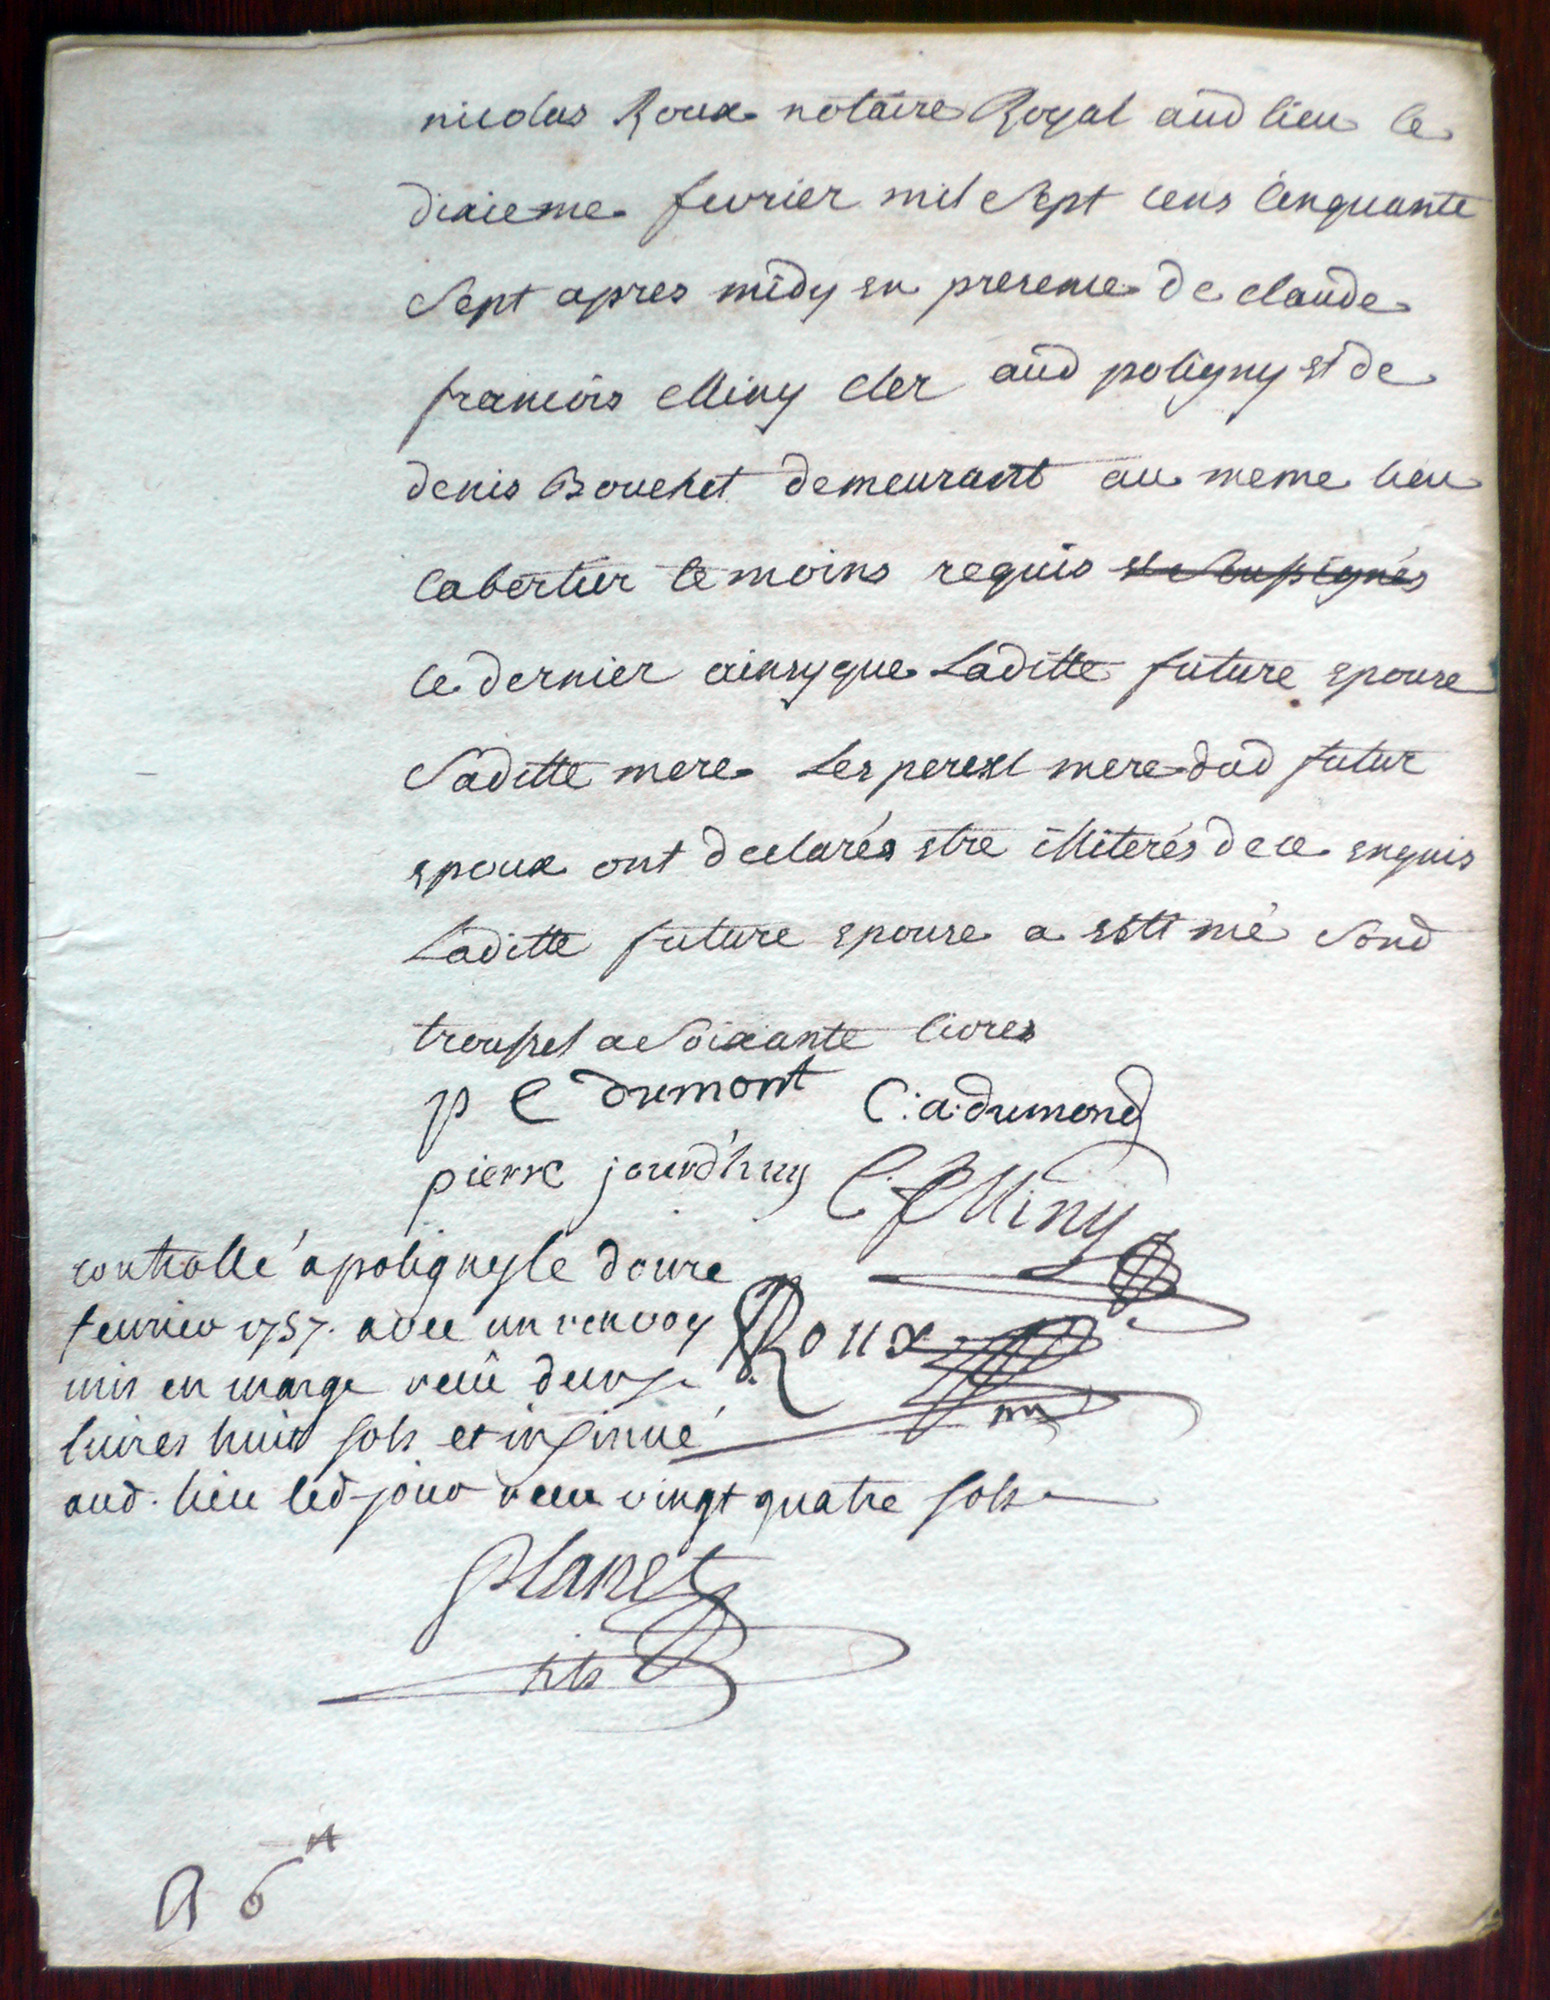 nicolas Roux notaire Royal aud lieu le
dixieme fevrier mil sept cens cinquante
sept apres midy en presence de claude
francois Miny cler aud poligny et de
denis Bouchet demeurant au meme lieu
temoins requis et soussignés
le dernier ainsyque Laditte future epouse
saditte mere Les pere et mere dud futur
epoux ont declarés etre illiterés de ce enquis
Laditte future epouse a estimé sond
troussel a soixante livres
p C dumont C : a : dumond
pierre jourd'huy C. f Miny
controllé a poligny le douze
fevrier 1757. avec un renvoy Roux
mis en marge receu deux
livres huit sols et insinué
aud. lieu led jour receu vingt quatre sols
Planet
R 6